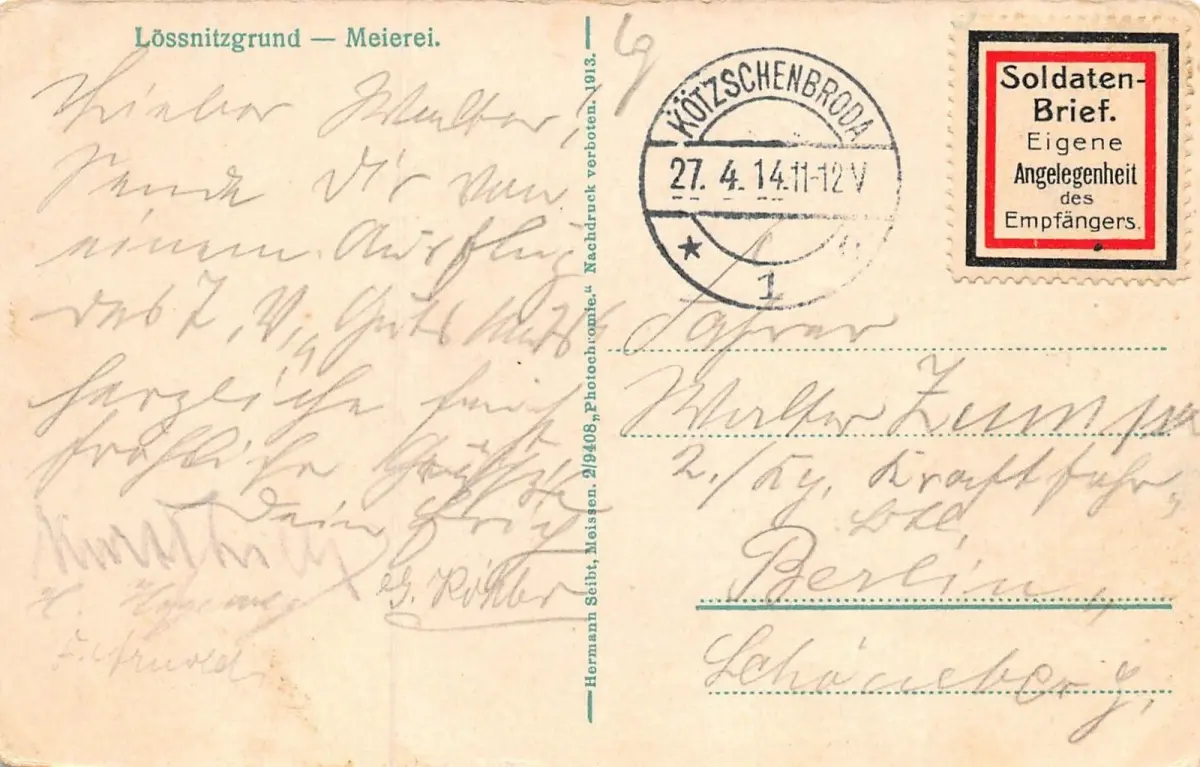 Lössnitzgrund — Meierei.
Lieber Walter!
Sende Dir von
einem Ausflug
des T. V. „Guts Muts"
herzliche
fröhliche Grüße
Dein
G. Köhler
F. Arnold
Hermann Seibt, Meissen. 2/9408 „Photochromie." Nachdruck verboten. 1913.
KÖTZSCHENBRODA
27. 4. 14. 11-12 V
* 1
Soldaten-
Brief.
Eigene
Angelegenheit
des
Empfängers.
Fahrer
Walter Zumpe
2./Kg. Kraftfahr-
Btl.
Berlin„
Schöneberg.